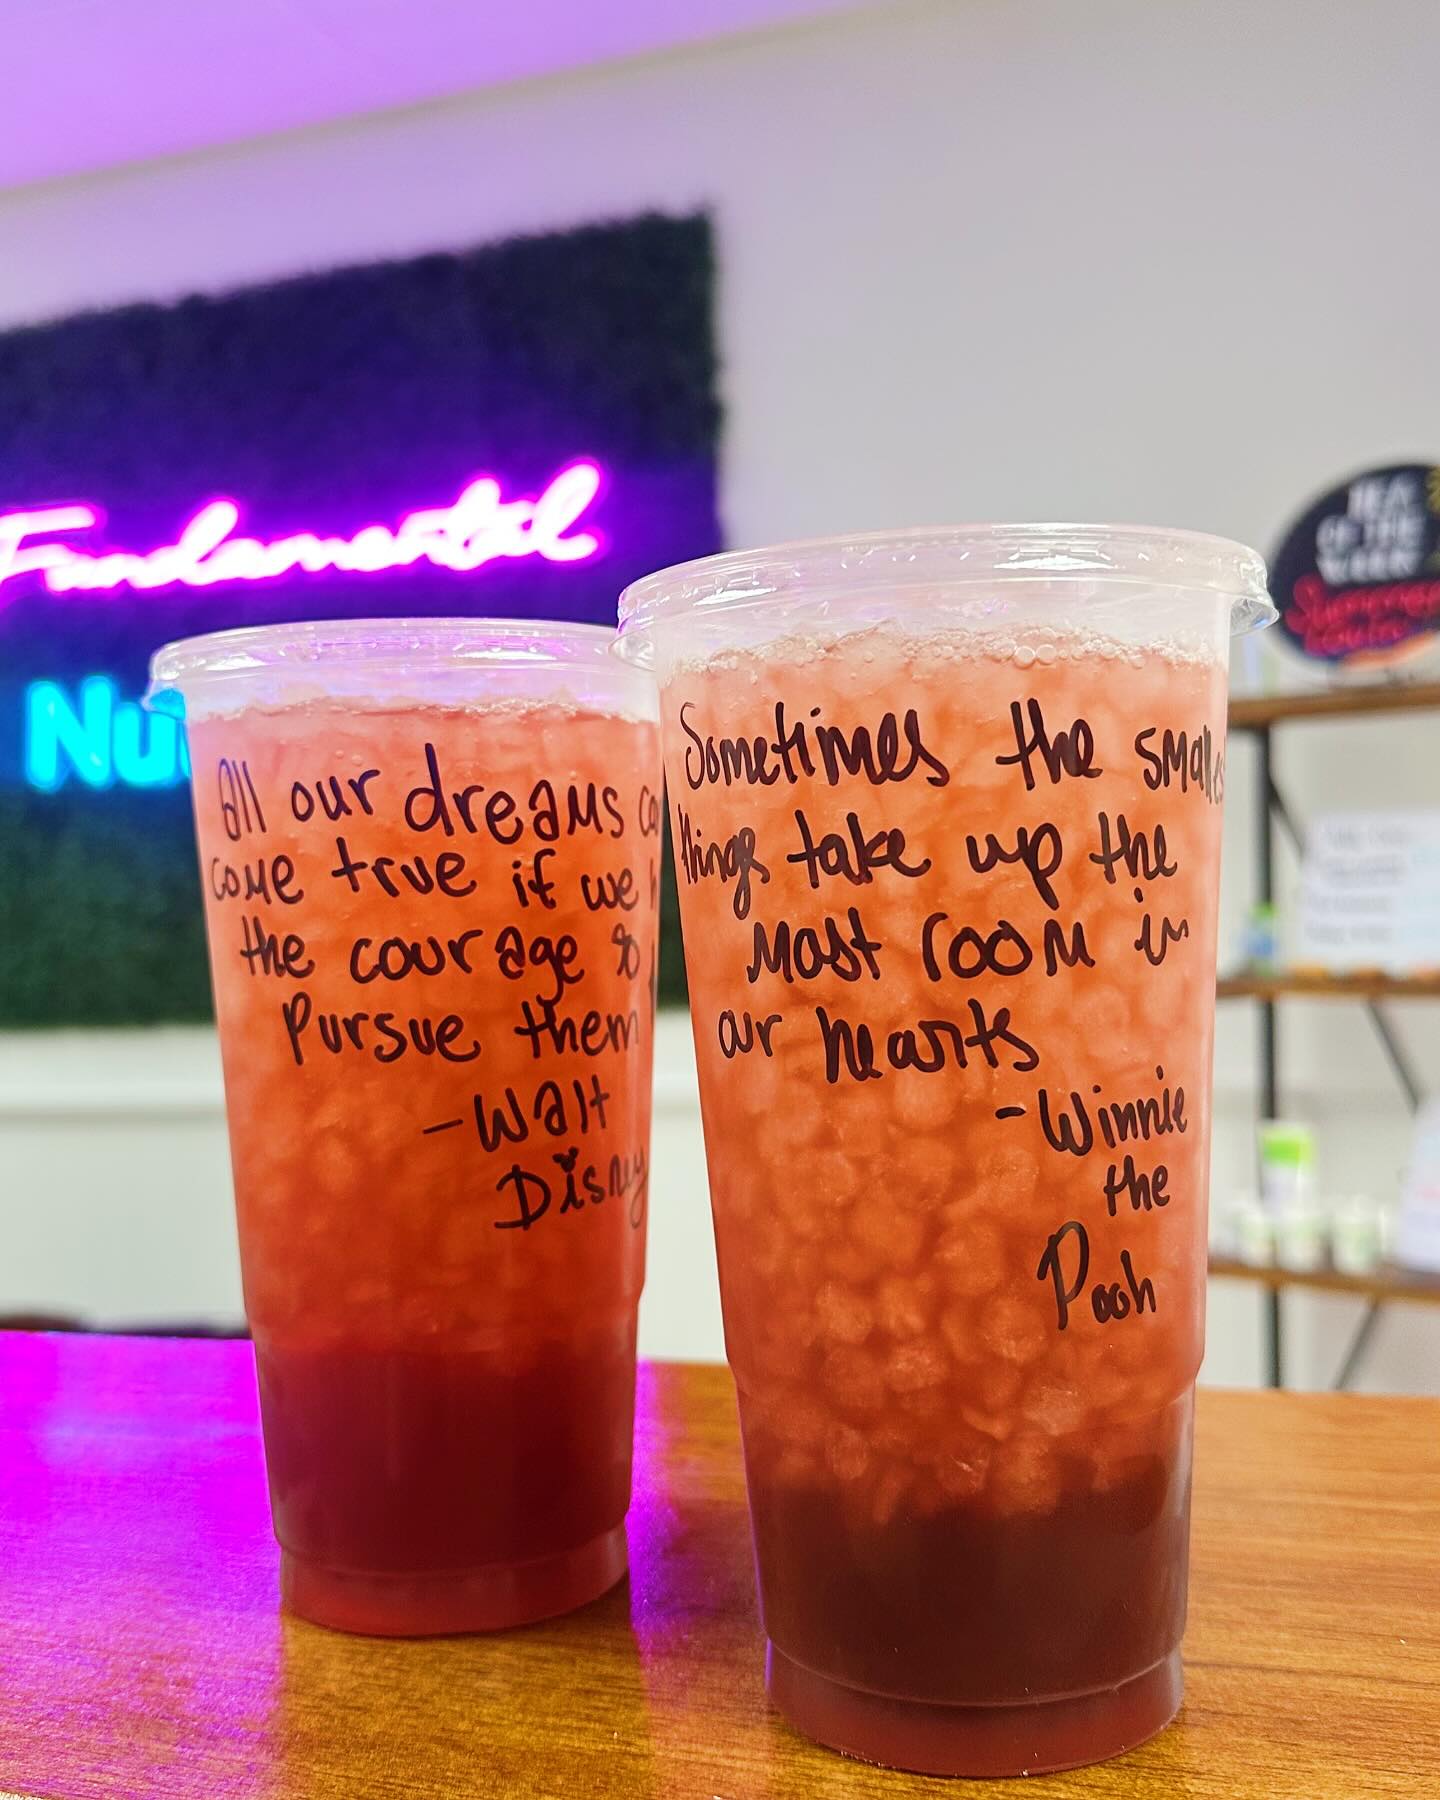 Fundamental
Nu
All our dreams
come true if we
the courage to
Pursue them
-Walt
Disney
Sometimes the smalles
things take up the
most room in
our hearts
-Winnie
the
Pooh
TEA
OF THE
WEEK